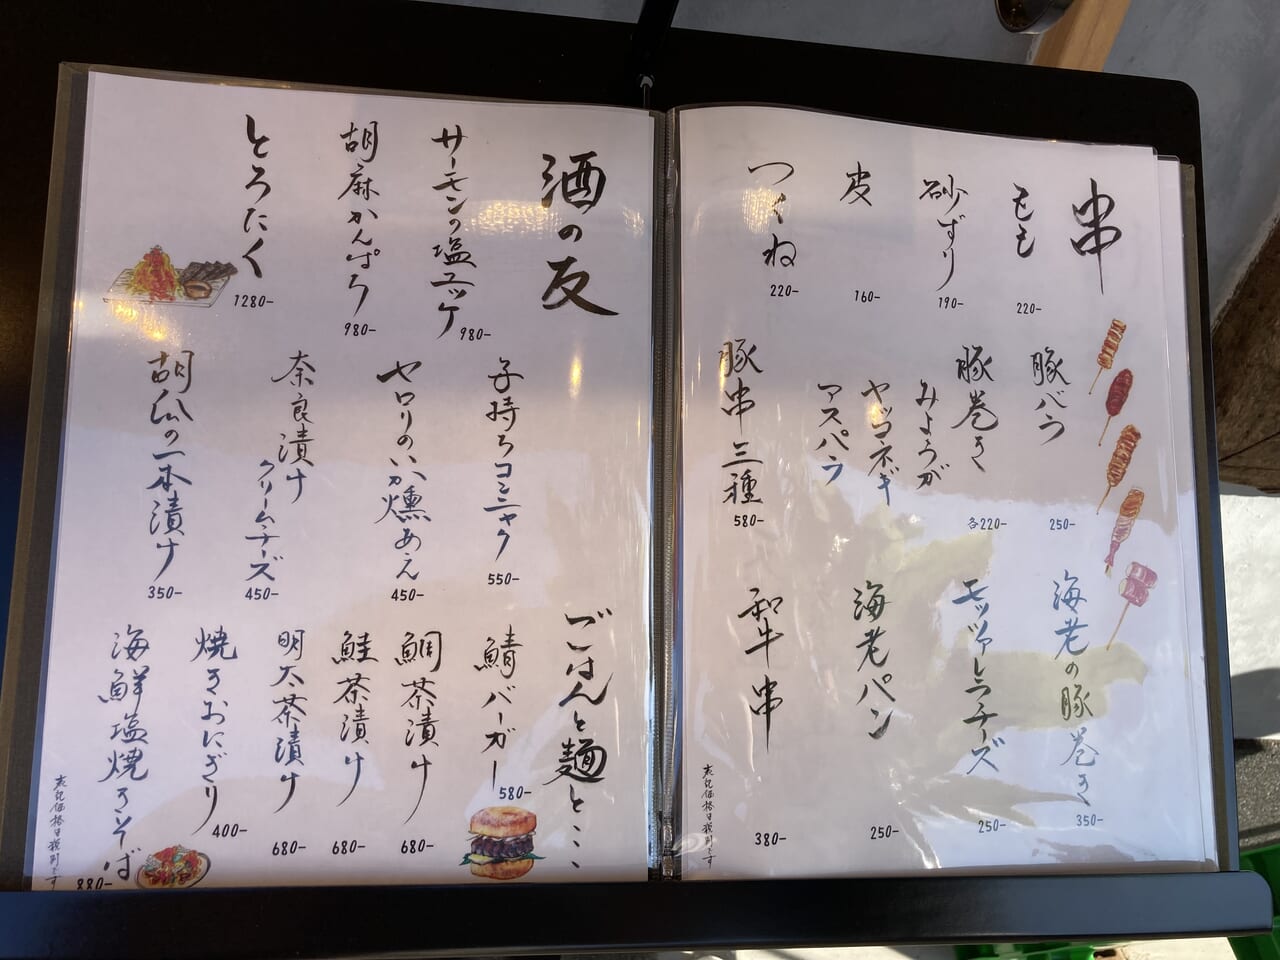 串
もも
220-
砂ずり
190-
皮
160-
つくね
220-
豚バラ
250-
豚巻き
みょうが
ヤッコネギ
アスパラ
各220-
豚串三種
580-
海老の豚巻き
350-
モッツァレラチーズ
250-
海老パン
250-
和牛串
380-
表記価格は税別です
酒の友
サーモンの塩ユッケ
980-
胡麻かんぱち
980-
とろたく
1280-
子持ちコンニャク
550-
ヤロリのいか燻あえ
450-
奈良漬け
クリームチーズ
450-
胡瓜の一本漬け
350-
ごはんと麺と…
鯖バーガー
580-
鯛茶漬け
680-
鮭茶漬け
680-
明太茶漬け
680-
焼きおにぎり
400-
海鮮塩焼きそば
880-
表記価格は税別です